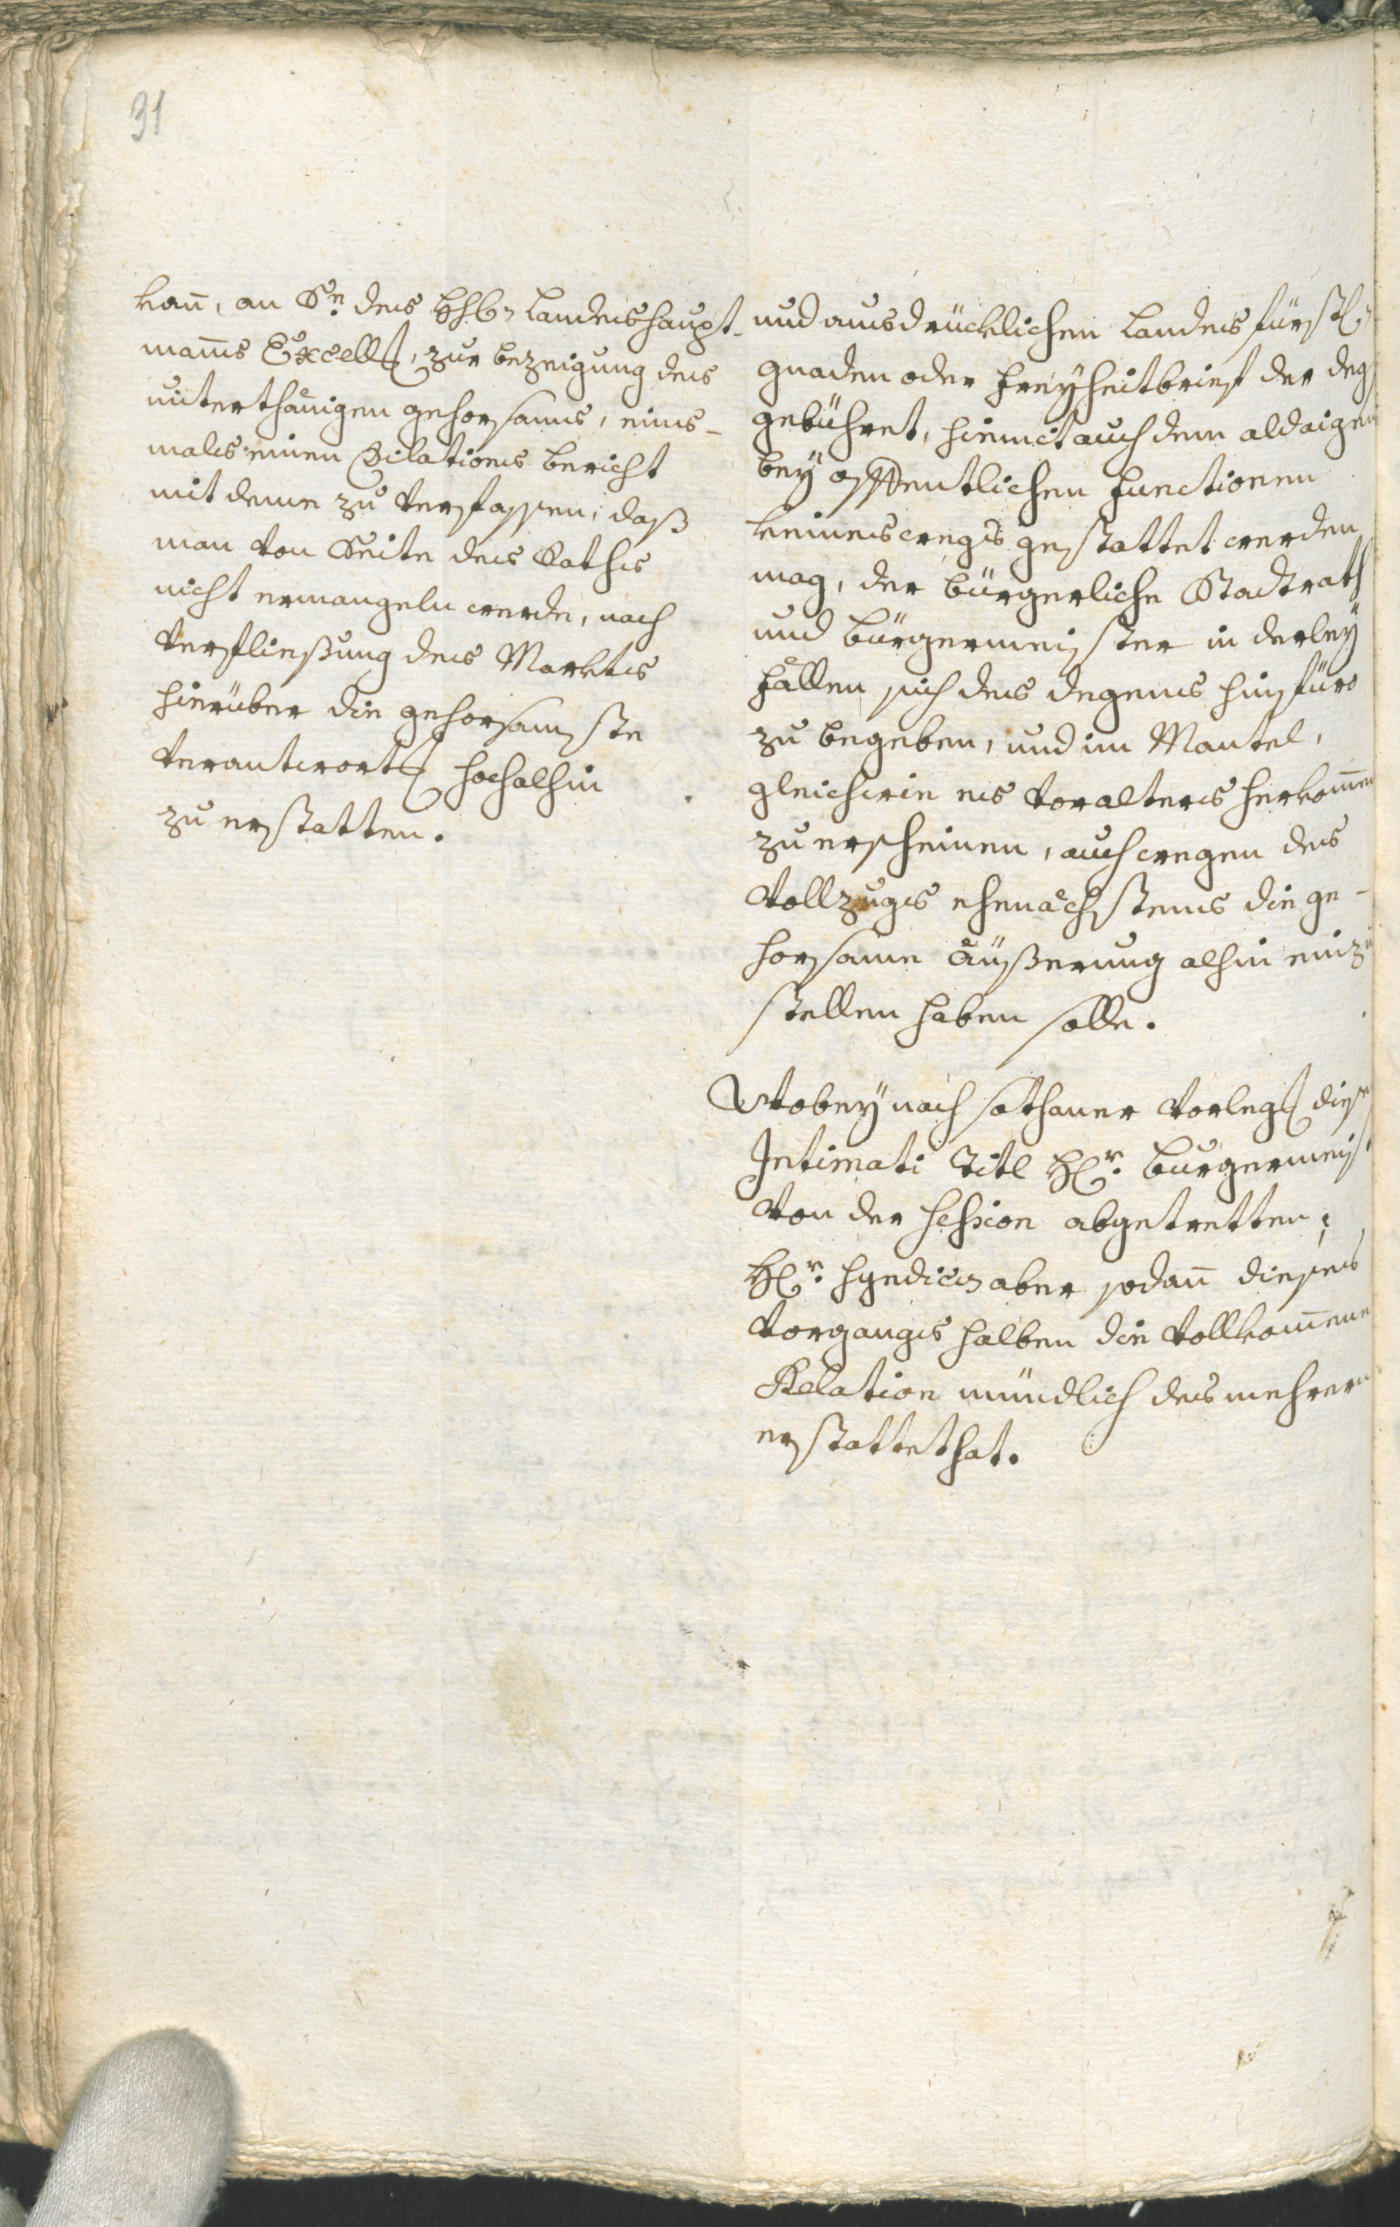 31
kan̄, an Sr. des H: Landeshaupt-
manns Excell, zur bezeigung des
unterthänigen gehorsams, eins-
mals einen Dilations bericht
mit deme zu verfassen, daß
man von Seite des Raths
nicht ermangeln werde, nach
verfließung des Markts
hierüber die gehorsamste
verantwort hochalhin
zu erstatten.
und ausdrücklichen Landesfürstl:
gnaden oder freÿheitbrief der deg
gebühret, hiemit auch dem aldaigen
beÿ offentlichen functionen
keineswegs gestattet werden
mag, der bürgerliche Stadtrath
und bürgermeister in derleÿ
fällen sich des degens hinfüro
zu begeben, und im Mantel,
gleichwie es voralters herkom̄en
zu erscheinen, auch wegen des
Vollzugs ehenächstens die ge-
horsame äußerung alhin einzu
stellen haben solle.
Wobeÿ nach sothaner Vorleg dieses
Intimati Titl Hr. burgermeist
von der Session abgetretten,
Hr. Syndicus aber sodan̄ dieses
Vorgangs halben die vollkom̄ene
Relation mündlich des mehrern
erstattet hat.